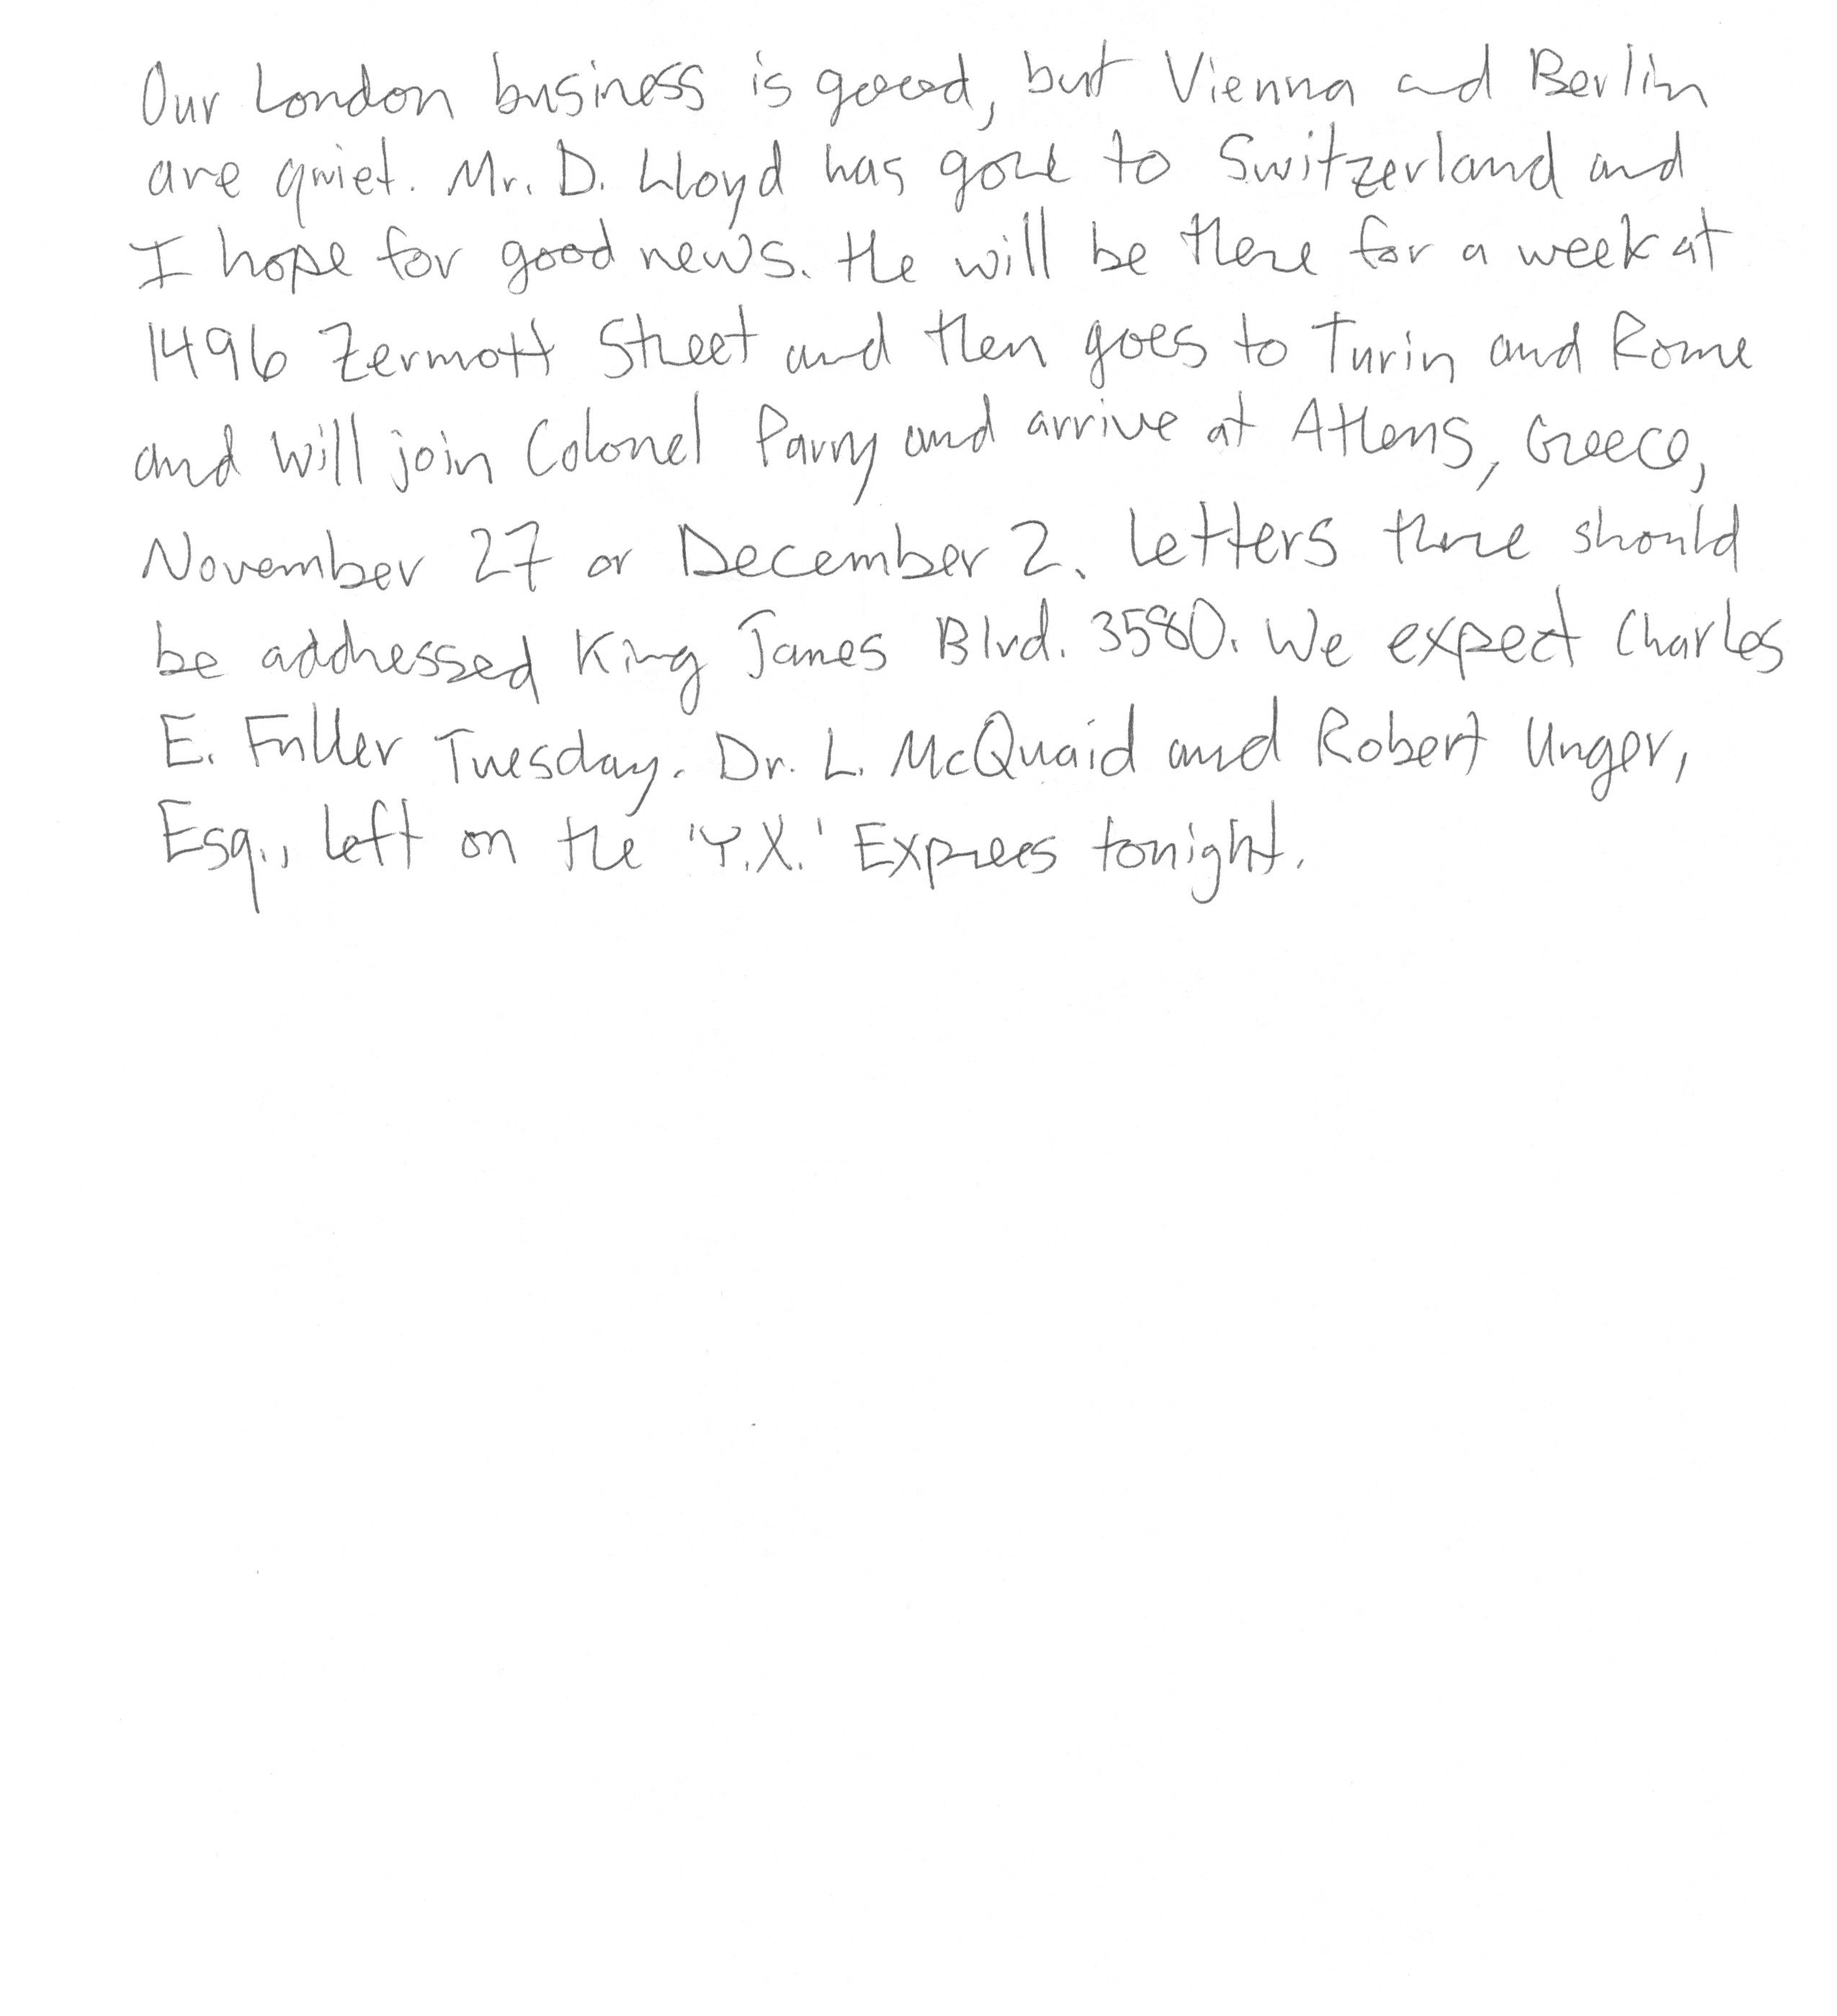 Our London business is good, but Vienna and Berlin
are quiet. Mr. D. Lloyd has gone to Switzerland and
I hope for good news. He will be there for a week at
1496 Zermott Street and then goes to Turin and Rome
and will join Colonel Parry and arrive at Athens, Greece,
November 27 or December 2. Letters there should
be addressed King James Blvd. 3580. We expect Charles
E. Fuller Tuesday. Dr. L. McQuaid and Robert Unger,
Esq., left on the 'Y.X.' Express tonight.